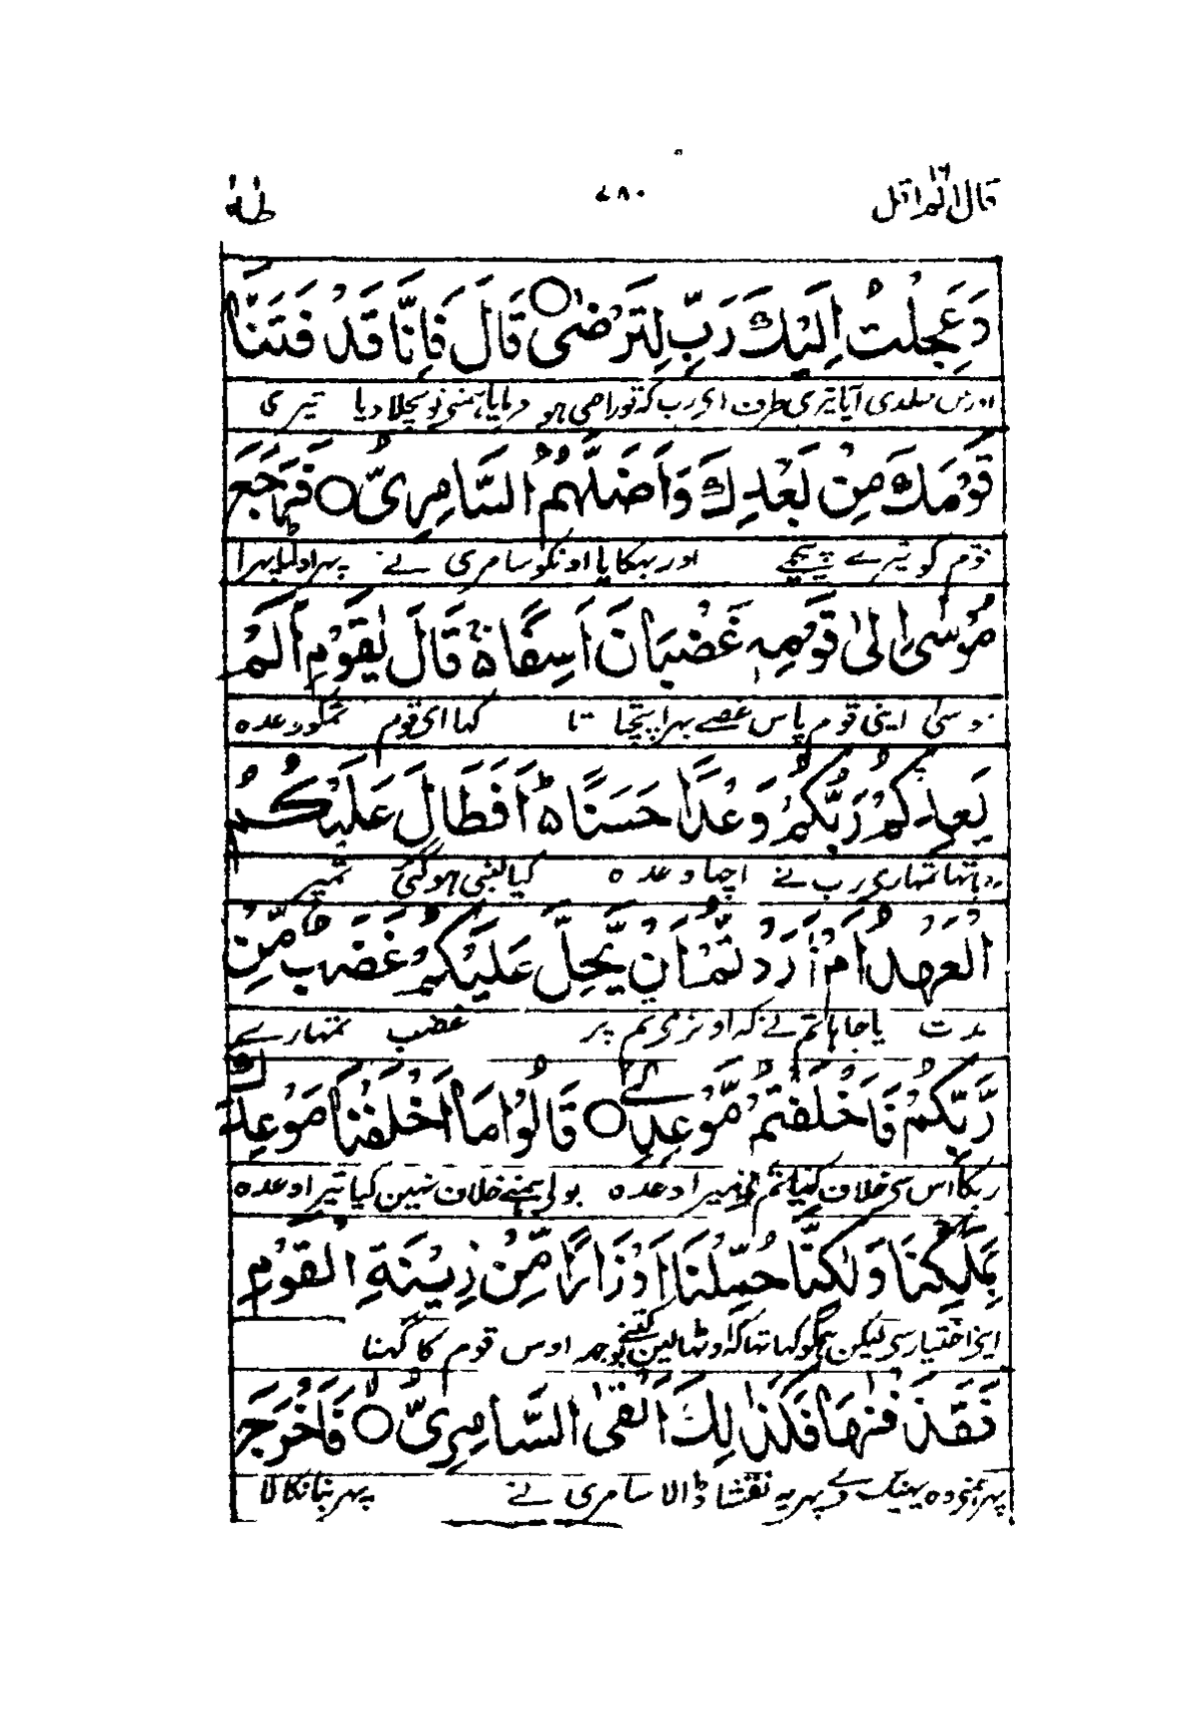 قال الم اقل ١٦
٤٨٠
طٰهٰ
وَعَجِلْتُ اِلَيْكَ رَبِّ لِتَرْضٰى ○ قَالَ فَاِنَّا قَدْ فَتَنَّا
اور میں جلدی آیا تیری طرف ای رب کہ تو راضی ہو فرمایا ہمنے تو بچلا دیا تیری
قَوْمَكَ مِنْۢ بَعْدِكَ وَاَضَلَّهُمُ السَّامِرِىُّ ○ فَرَجَعَ
قوم کو تیرے پیچھے اور بہکایا اونکو سامری نے پہر اولٹا پہرا
مُوْسٰٓى اِلٰى قَوْمِهٖ غَضْبَانَ اَسِفًا ۵ قَالَ يٰقَوْمِ اَلَمْ
موسیٰ اپنی قوم پاس غصے بہرا پچتاتا کہا ای قوم تمکو وعدہ
يَعِدْكُمْ رَبُّكُمْ وَعْدًا حَسَنًا ۵ط اَفَطَالَ عَلَيْكُمُ
ندیا تہا تمہاری رب نے اچہا وعدہ کیا لنبی ہو گئی تمپر
الْعَهْدُ اَمْ اَرَدْتُّمْ اَنْ يَّحِلَّ عَلَيْكُمْ غَضَبٌ مِّنْ
مدت یا چاہا تم نے کہ اوترے تم پر غضب تمہارے
رَّبِّكُمْ فَاَخْلَفْتُمْ مَّوْعِدِىْ ○ قَالُوْا مَآ اَخْلَفْنَا مَوْعِدَكَ
رب کا اس سی خلاف کیا تم نی میرا وعدہ بولی ہمنے خلاف نہین کیا تیرا وعدہ
بِمَلْكِنَا وَلٰكِنَّا حُمِّلْنَآ اَوْزَارًا مِّنْ زِيْنَةِ الْقَوْمِ
اپنے اختیار سی لیکن ہمکو کہا تہا کہ اوٹہالین کتنے بوجہ اوس قوم کا گہنا
فَقَذَفْنٰهَا فَكَذٰلِكَ اَلْقَى السَّامِرِىُّ ○ۙ فَاَخْرَجَ
پہر ہمنے وہ پہینک دے پہر یہ نقشا ڈالا سامری نے پہر بنا نکالا